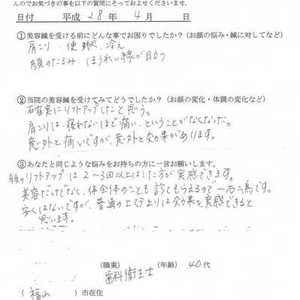 んのでお気づきの事を以下の質問にそってお書きくださいませ。
日付 平成 28 年 4 月 日
①美容鍼を受ける前にどんな事でお困りでしたか？（お顔の悩み・鍼に対してなど）
肩こり、便秘、冷え
顔のたるみ、ほうれい線が目立つ
②当院の美容鍼を受けてみてどうでしたか？（お顔の変化・体調の変化など）
右写真にリフトアップしたと思う。
肩こりは寝れないほど痛いということがなくなった。
思い外と痛いですが、思い外と効果があります。
③あなたと同じような悩みをお持ちの方に一言お願いします。
顔のリフトアップは2～3回以上はした方が実感できます。
美容だけでなく、体全体のことも診てもらえるので一石二鳥です。
安くはないですが、普通のエステよりは効果を実感できると
思います。
（職業） 歯科衛生士 （年齢） 40代
（ 福山 ）市在住